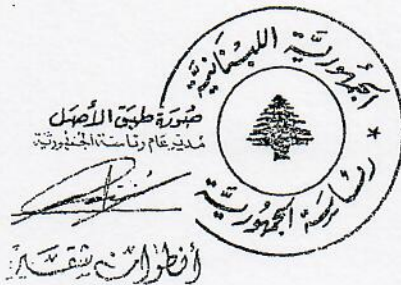 الجمهوريّة اللبنانيّة
رئاسة الجمهوريّة
صورة طبق الأصل
مدير عام رئاسة الجمهوريّة
أنطوان شقير